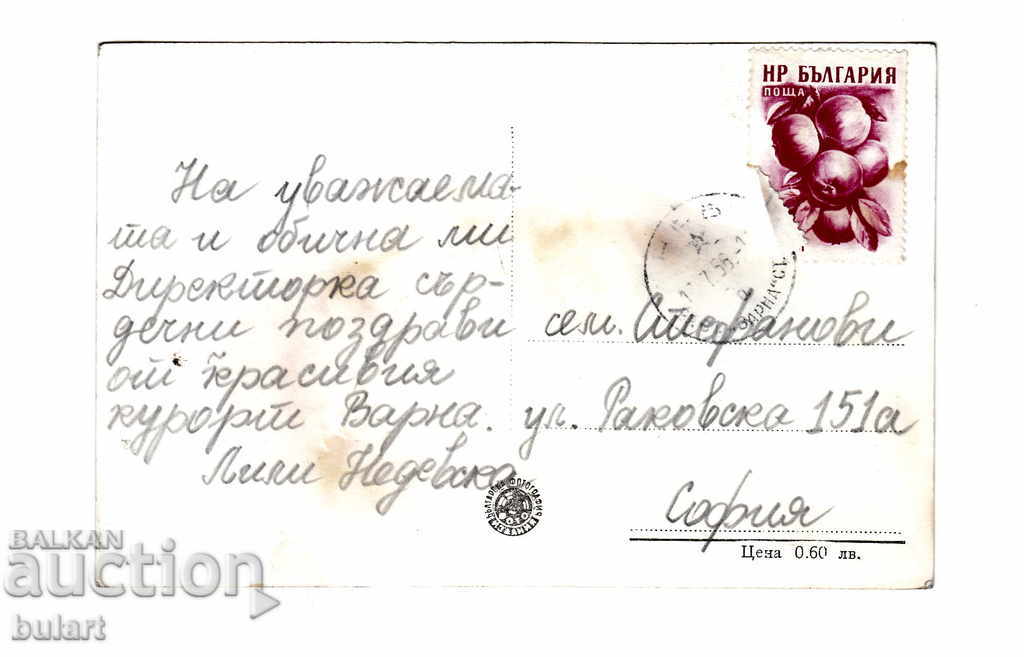 НР БЪЛГАРИЯ
ПОЩА
На уважаема-
та и обична ми
Директорка сър-
дечни поздрави
от красивия
курорт Варна.
Лили Недевска
сем. Стефанови
ул. Раковска 151а
София
ВАРНА
БЪЛГАРСКА ФОТОГРАФИЯ
Цена 0.60 лв.
BALKAN
auction
bulart